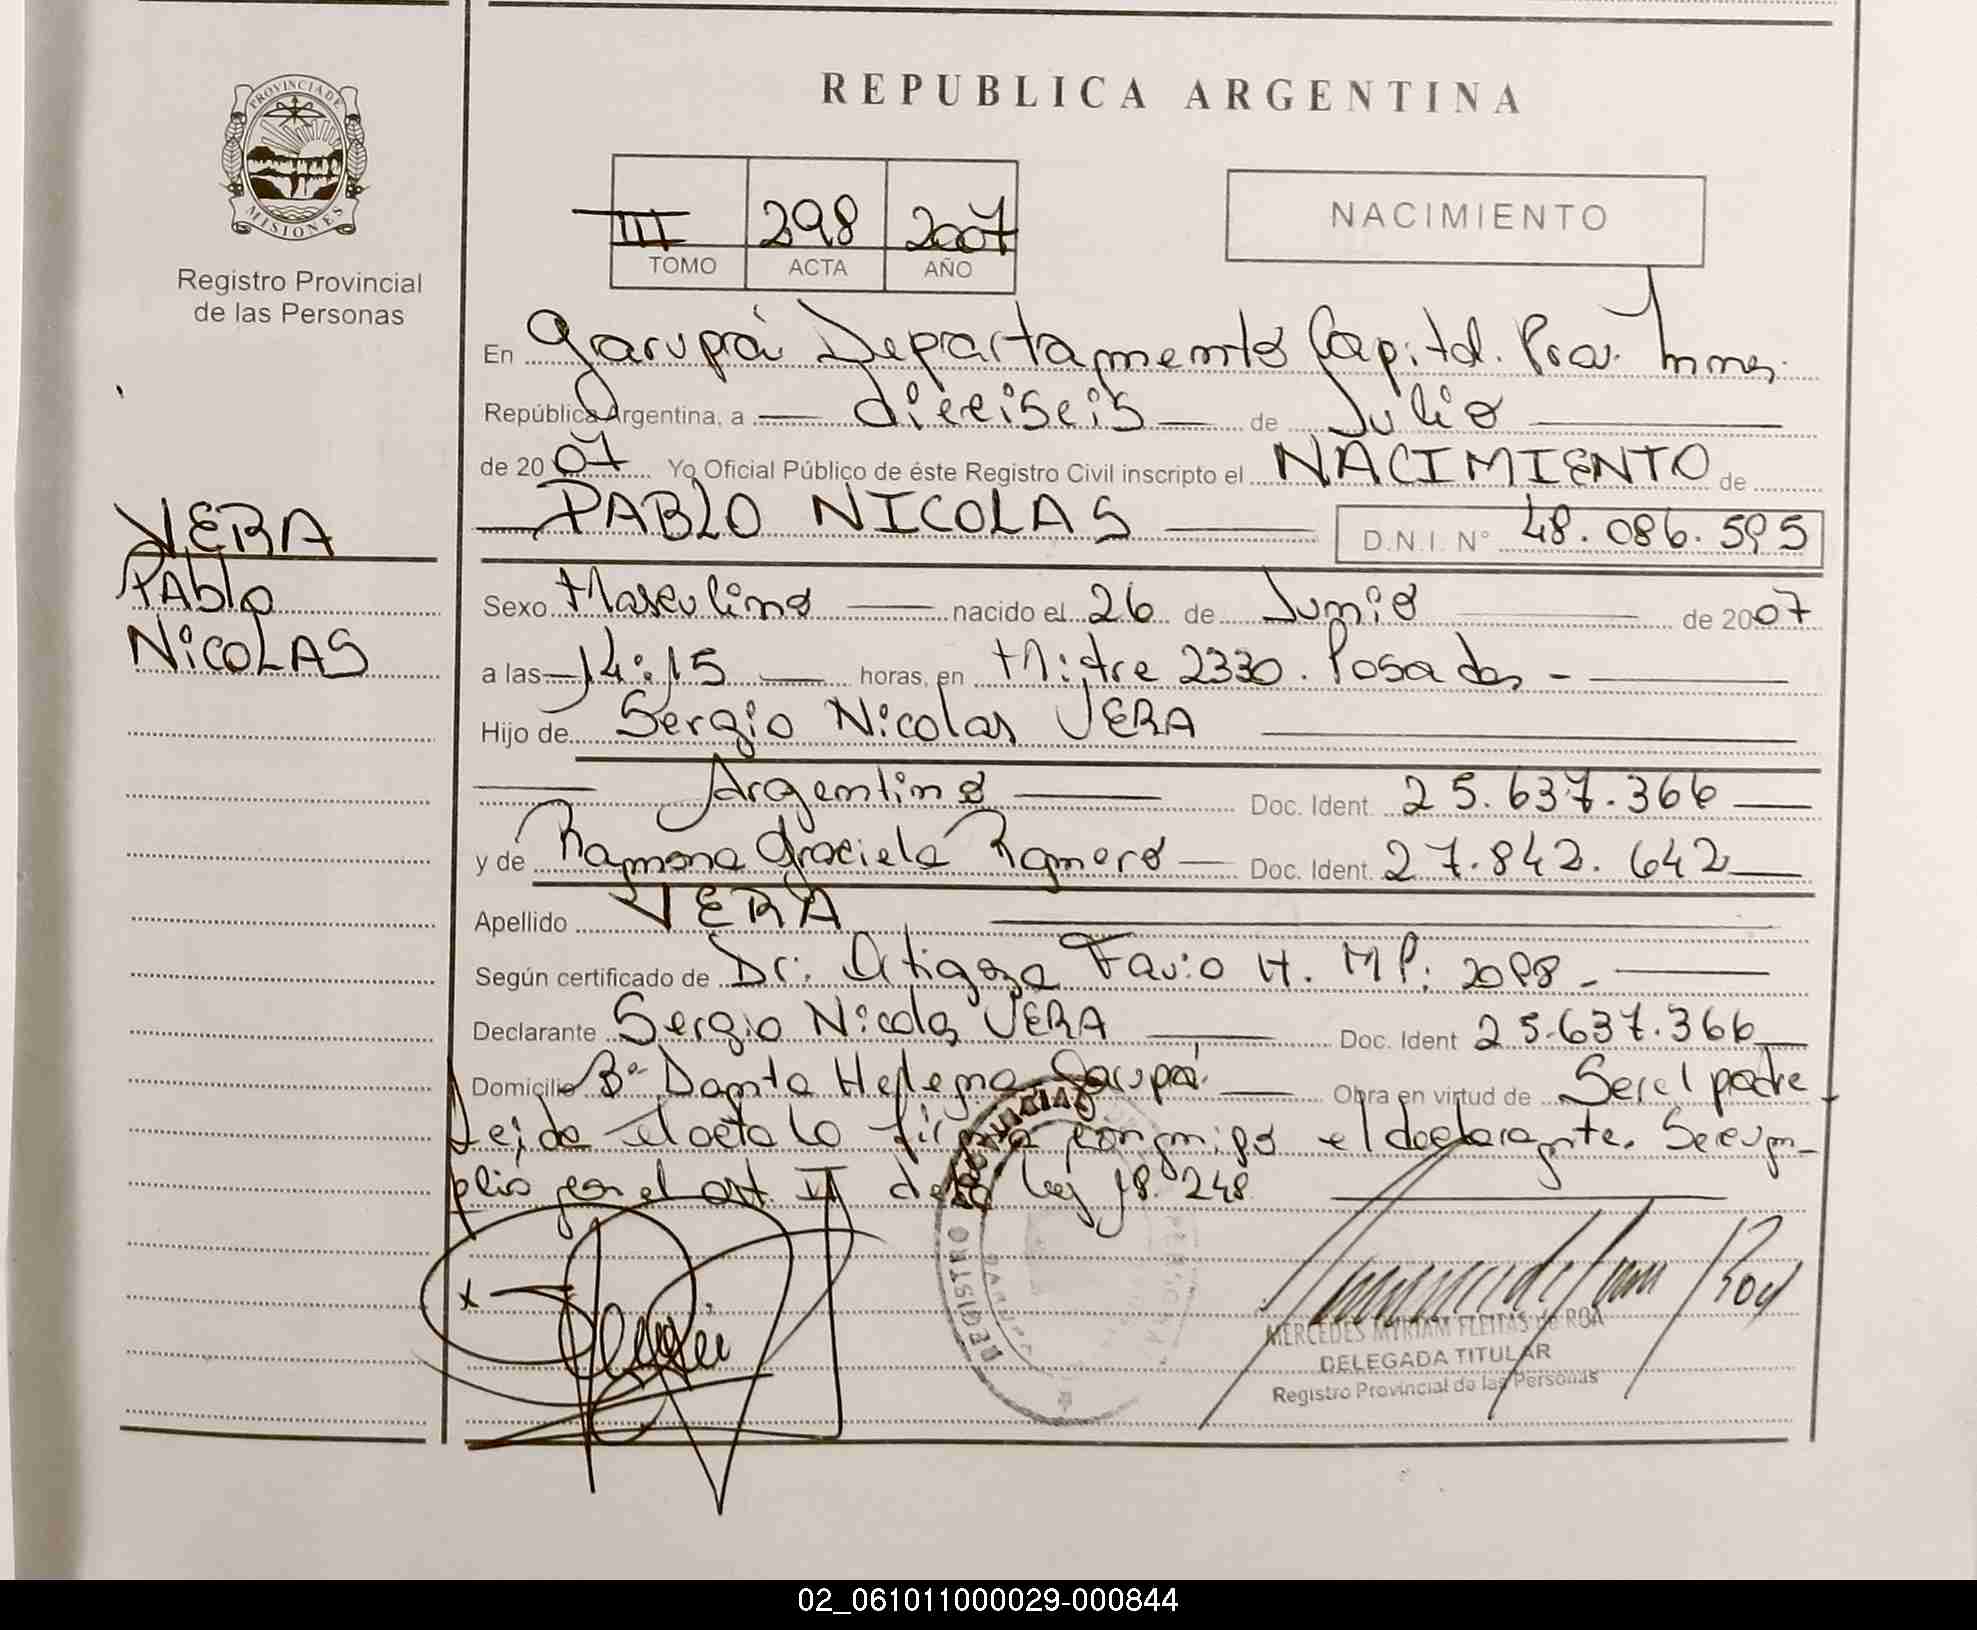 REPUBLICA ARGENTINA
PROVINCIA DE
MISIONES
Registro Provincial
de las Personas
III 298 2007
TOMO ACTA AÑO
NACIMIENTO
En Garupá Departamento Capital. Prov. Mnes.
República Argentina, a dieciseis de Julio
de 2007 Yo Oficial Público de éste Registro Civil inscripto el NACIMIENTO de
PABLO NICOLAS D.N.I. N° 48.086.595
VERA
Pablo
NicoLAS
Sexo Masculino nacido el 26 de Junio de 2007
a las 14:15 horas, en Mitre 2330. Posadas -
Hijo de Sergio Nicolas VERA
Argentino Doc. Ident. 25.637.366
y de Ramona Graciela Romero Doc. Ident. 27.842.642
Apellido VERA
Según certificado de Dr: Ortigoza Favio H. MP: 2098 -
Declarante Sergio Nicolas VERA Doc. Ident 25.637.366
Domicilio B° Santa Helena Garupá Obra en virtud de Ser el padre
Leida el acta lo firma conmigo el declarante. Se cum-
plió con el art. VI de la ley 18.248
REGISTRO PROVINCIAL
MERCEDES MYRIAM FLEITAS de ROA
DELEGADA TITULAR
Registro Provincial de las Personas
02_061011000029-000844